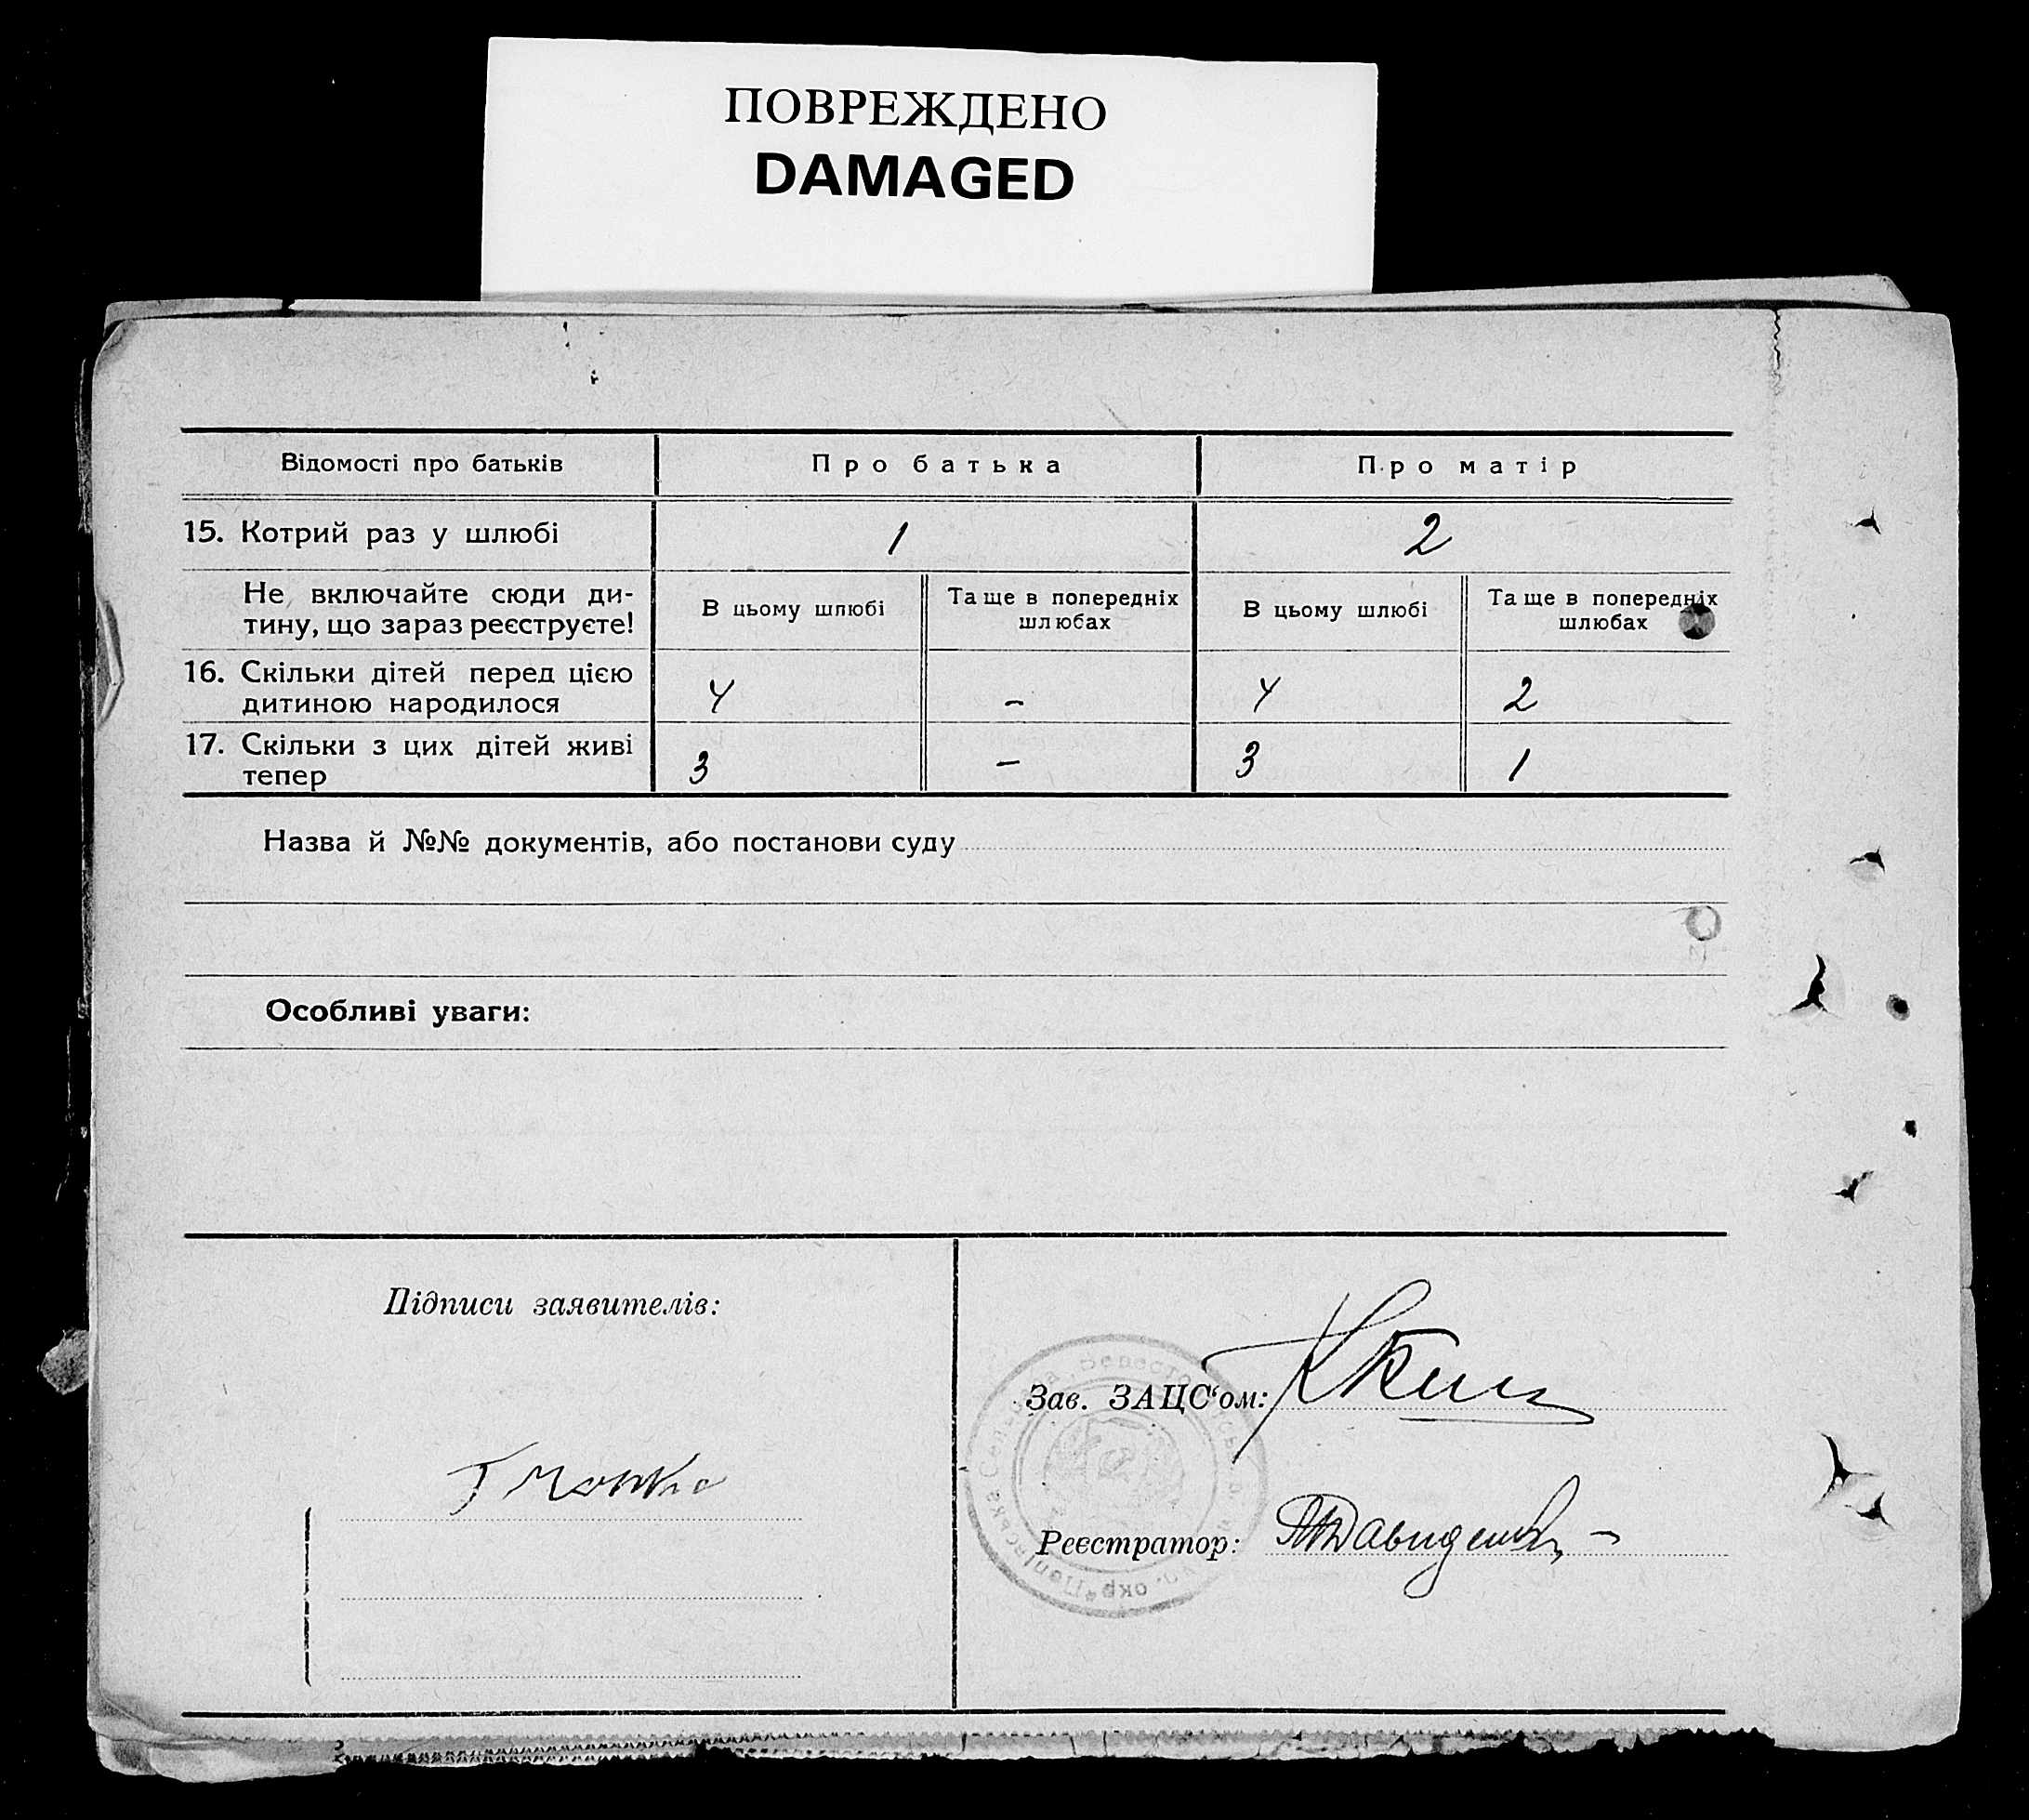 ПОВРЕЖДЕНО
DAMAGED
Відомості про батьків
Про батька
Про матір
15. Котрий раз у шлюбі
1
2
Не включайте сюди ди-
тину, що зараз реєструєте!
В цьому шлюбі
Та ще в попередніх
шлюбах
В цьому шлюбі
Та ще в попередніх
шлюбах
16. Скільки дітей перед цією
дитиною народилося
4
-
4
2
17. Скільки з цих дітей живі
тепер
3
-
3
1
Назва й №№ документів, або постанови суду
Особливі уваги:
Підписи заявителів:
Зав. ЗАЦС‘ом:
Реєстратор: